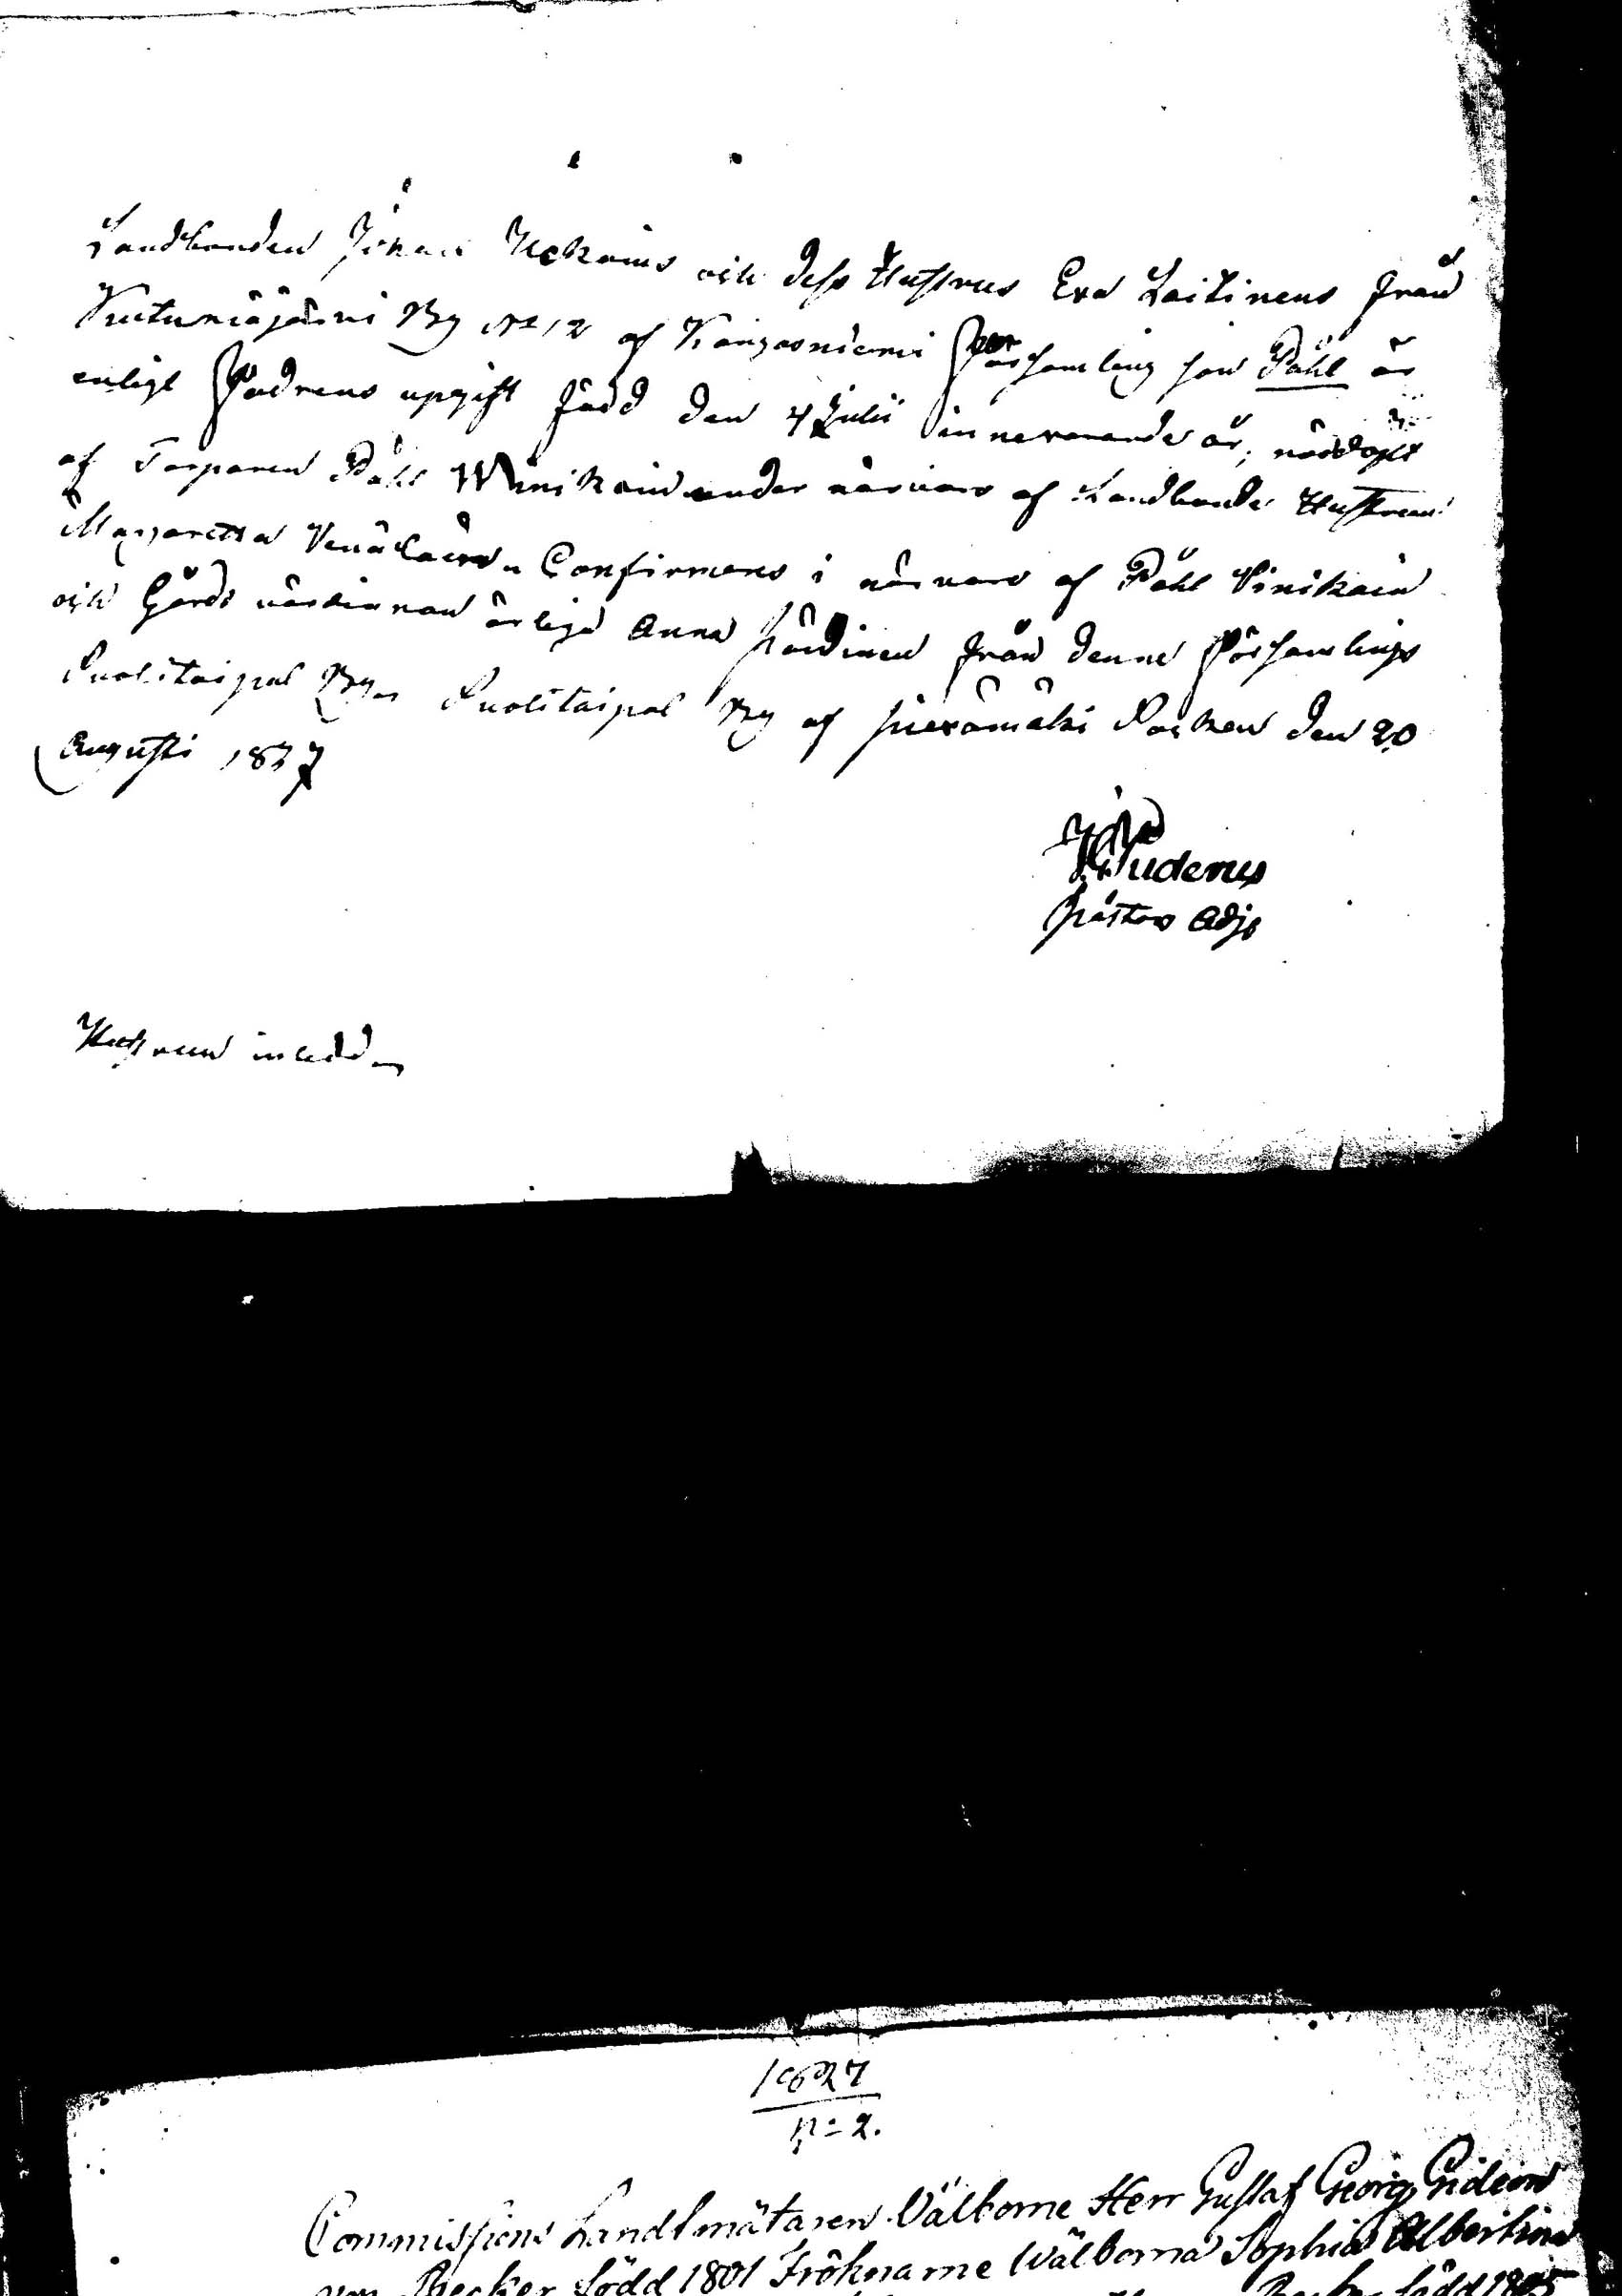 Landbonden Johan Ukoins och dess Hustrus Eva Laitinens från
Kutumäjärvi By No 12 af Kangasniemi Församling son Påhl är
enligt Fadrens upgift född den 4 Julii innevarande år, nöddöpt
af Torparen Påhl Winikain under närvaro af Landbonde Hustrun
Margaretta Venäläin. Confirmeras i närvaro af Påhl Vinikain
och Gårds värdinnan ärliga Anna från denne Församlings
Suolitaipal By Suolitaipal By af Piexämäki Socken den 20
Augusti 1837
Pastors Adj.
Hustrun inledd
1827
n=2.
Commissions Landtmätaren Välborne Herr Gustaf Georg Gideon
von Becker född 1801 Fröknarne Wälborna Sophia Albertina
Becker född 1805